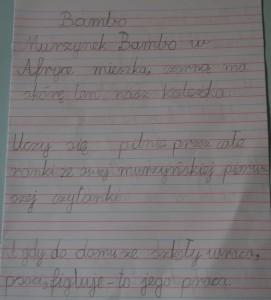 Bambo
Murzynek Bambo w
Afryce mieszka, czarną ma
skórę ten nasz koleżka.
Uczy się pilnie przez całe
ranki ze swej murzyńskiej pierw
szej czytanki.
I gdy do domu ze szkoły wraca,
psoci, figluje - to jego praca.